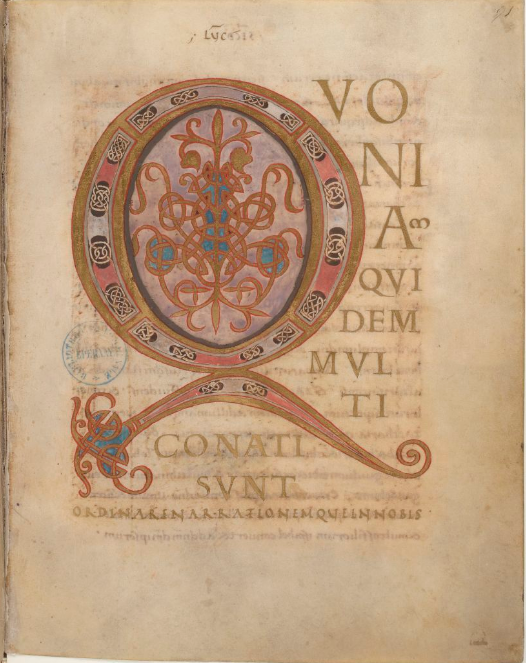 LUCAS
QVO
NI
AM
QVI
DEM
MVL
TI
CONATI
SVNT
ORDINARENARRATIONEMQUEINNOBIS